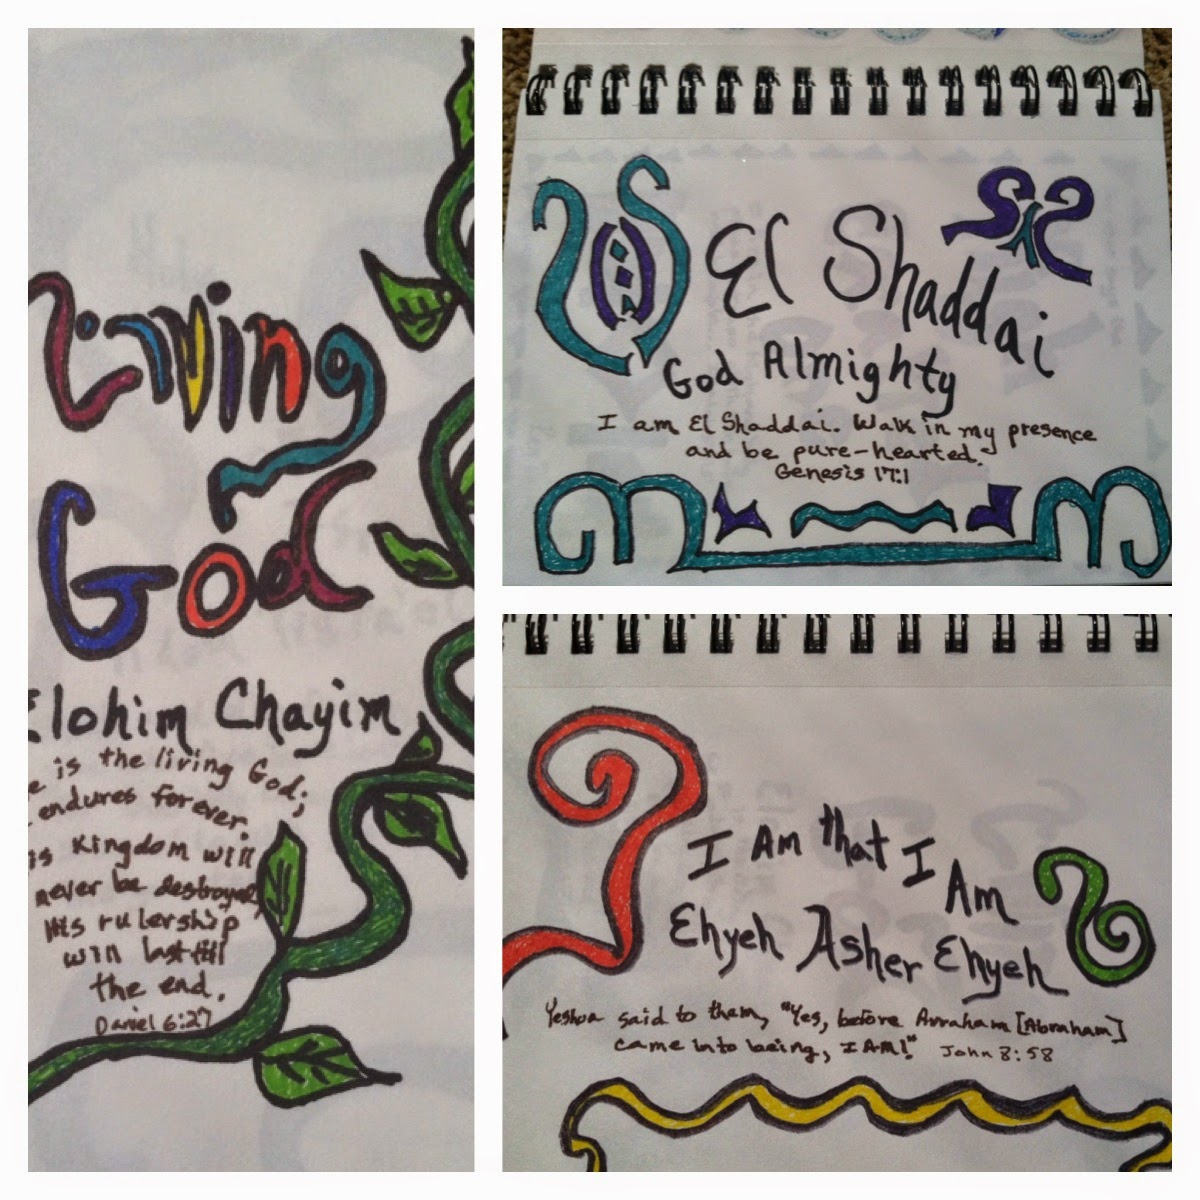 Living
God
Elohim Chayim
e is the living God;
endures forever.
is Kingdom will
never be destroyed,
His rulership
will last till
the end.
Daniel 6:27
El Shaddai
God Almighty
I am El Shaddai. Walk in my presence
and be pure-hearted.
Genesis 17:1
I Am that I Am
Ehyeh Asher Ehyeh
Yeshua said to them, "Yes, before Avraham [Abraham]
came into being, I AM!" John 8:58